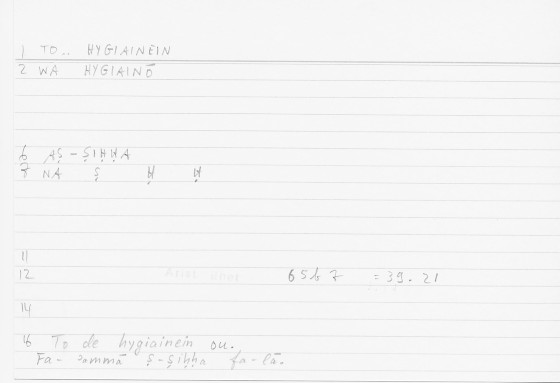 1 TO.. HYGIAINEIN
2 WA HYGIAINŌ
6 AṢ-ṢIḤḤA
7 NA Ṣ Ḥ Ḥ
11
12 65b 7 = 39. 21
14
16 To de hygiainein ou.
Fa-ʾammā ṣ-ṣiḥḥa fa-lā.